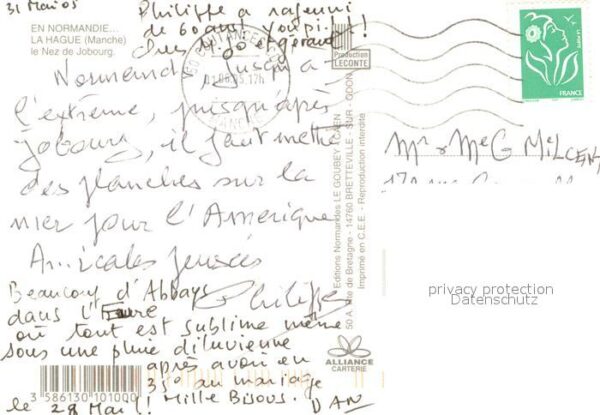 31 Mai 05
Philippe a rajeuni
de 60 ans! Youpi!!!
Chez M. Jo et Gérard
EN NORMANDIE...
LA HAGUE (Manche)
le Nez de Jobourg.
Normand jusqu'à
l'extrême, jusqu'après
Jobourg, il faut mettre
des planches sur la
mer pour l'Amérique
Amicales pensées
Philippe
Beaucoup d'Abbayes
dans l'Eure
où tout est sublime même
sous une pluie diluvienne
après avoir eu
35° au mariage
le 28 Mai! Mille Bisous. DAN
3 586130 101000
Production
LECONTE
Editions Normandes LE GOUBEY
50 A, de Bretagne - 14760 BRETTEVILLE-SUR-ODON
Imprimé en C.E.E. - Reproduction interdite
ALLIANCE
CARTERIE
FRANCE
LA POSTE
Mr & Me G
privacy protection
Datenschutz